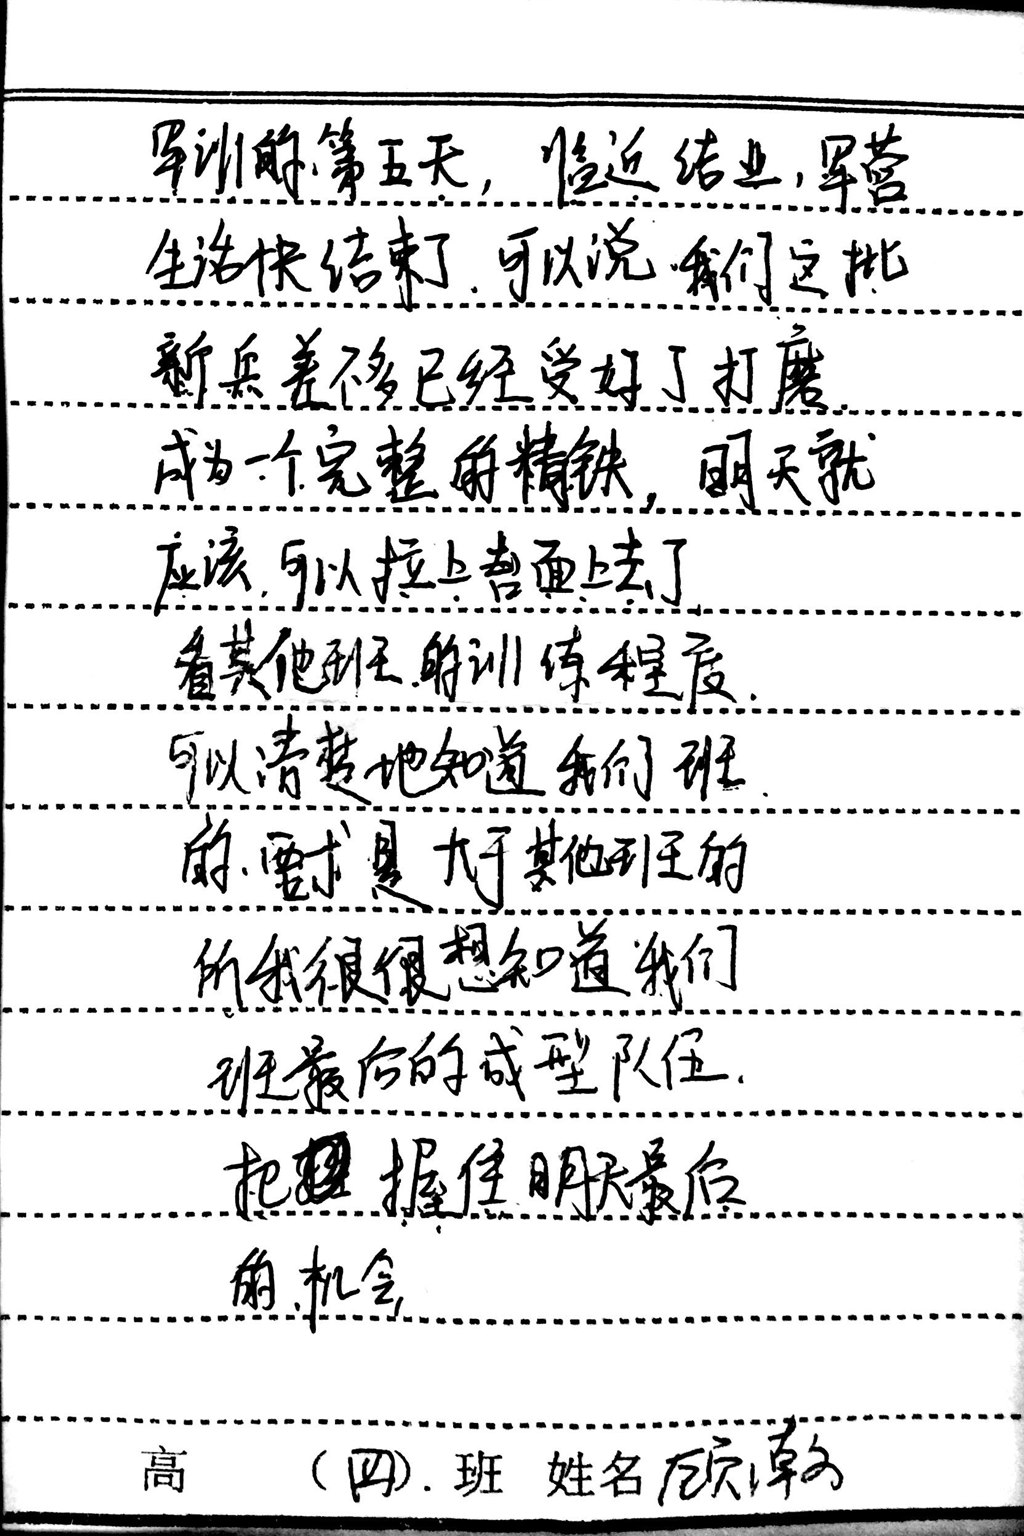 军训的第五天，临近结业，军营
生活快结束了.可以说我们这批
新兵差不多已经受好了打磨.
成为一个完整的精铁，明天就
应该.可以拉上台面上去了
看其他班.的训练程度.
可以清楚地知道我们班.
的.要求是大于其他班的
所我很很想知道我们
班最后的成型队伍.
把握住明天最后
的机会
高 (四).班 姓名顾瀚